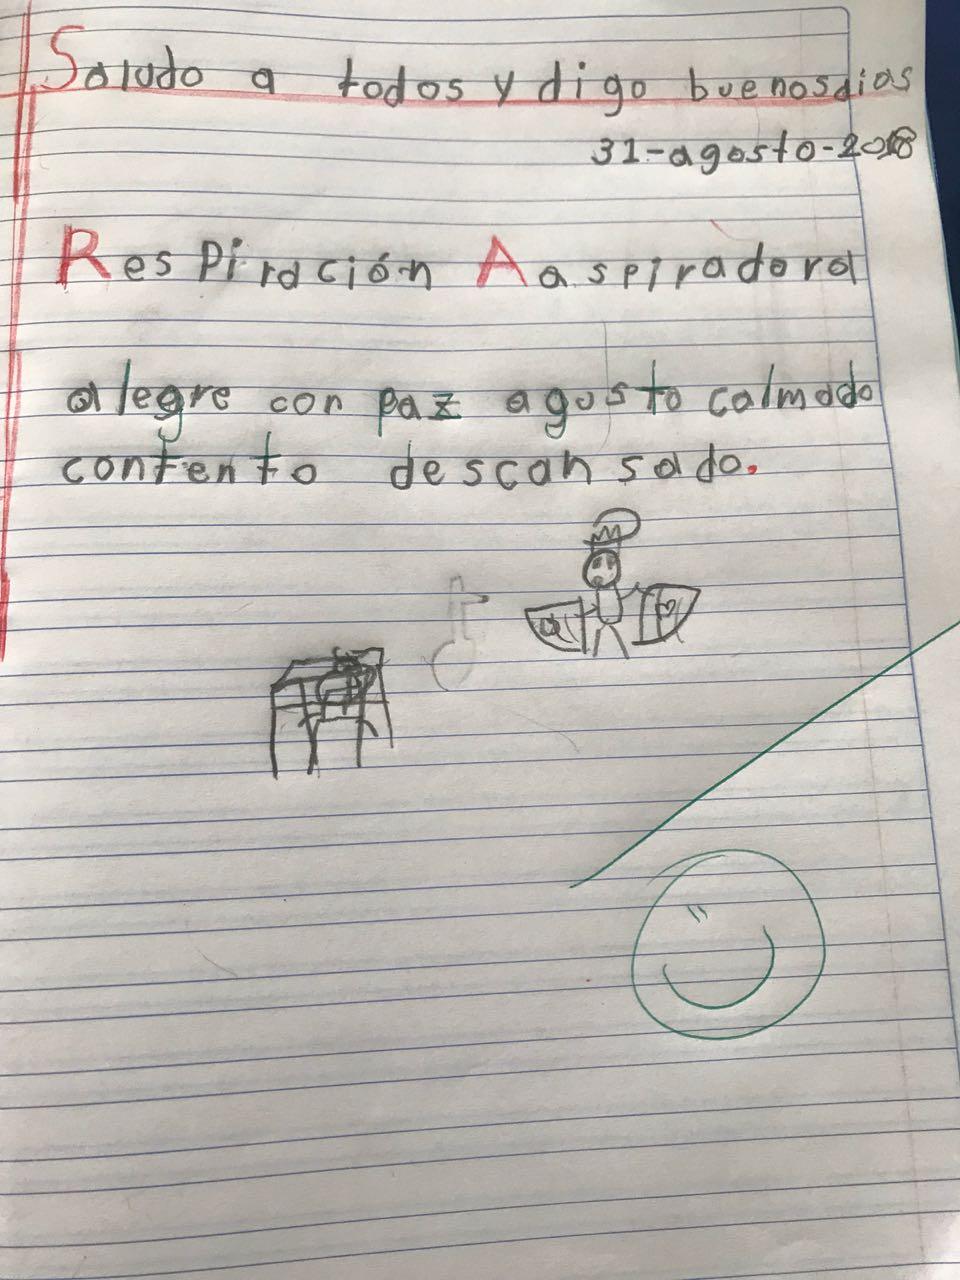 Saludo a todos y digo buenosdias
31-agosto-2018
ResPiración Aaspiradora
alegre con paz agusto calmado
contento descansado.